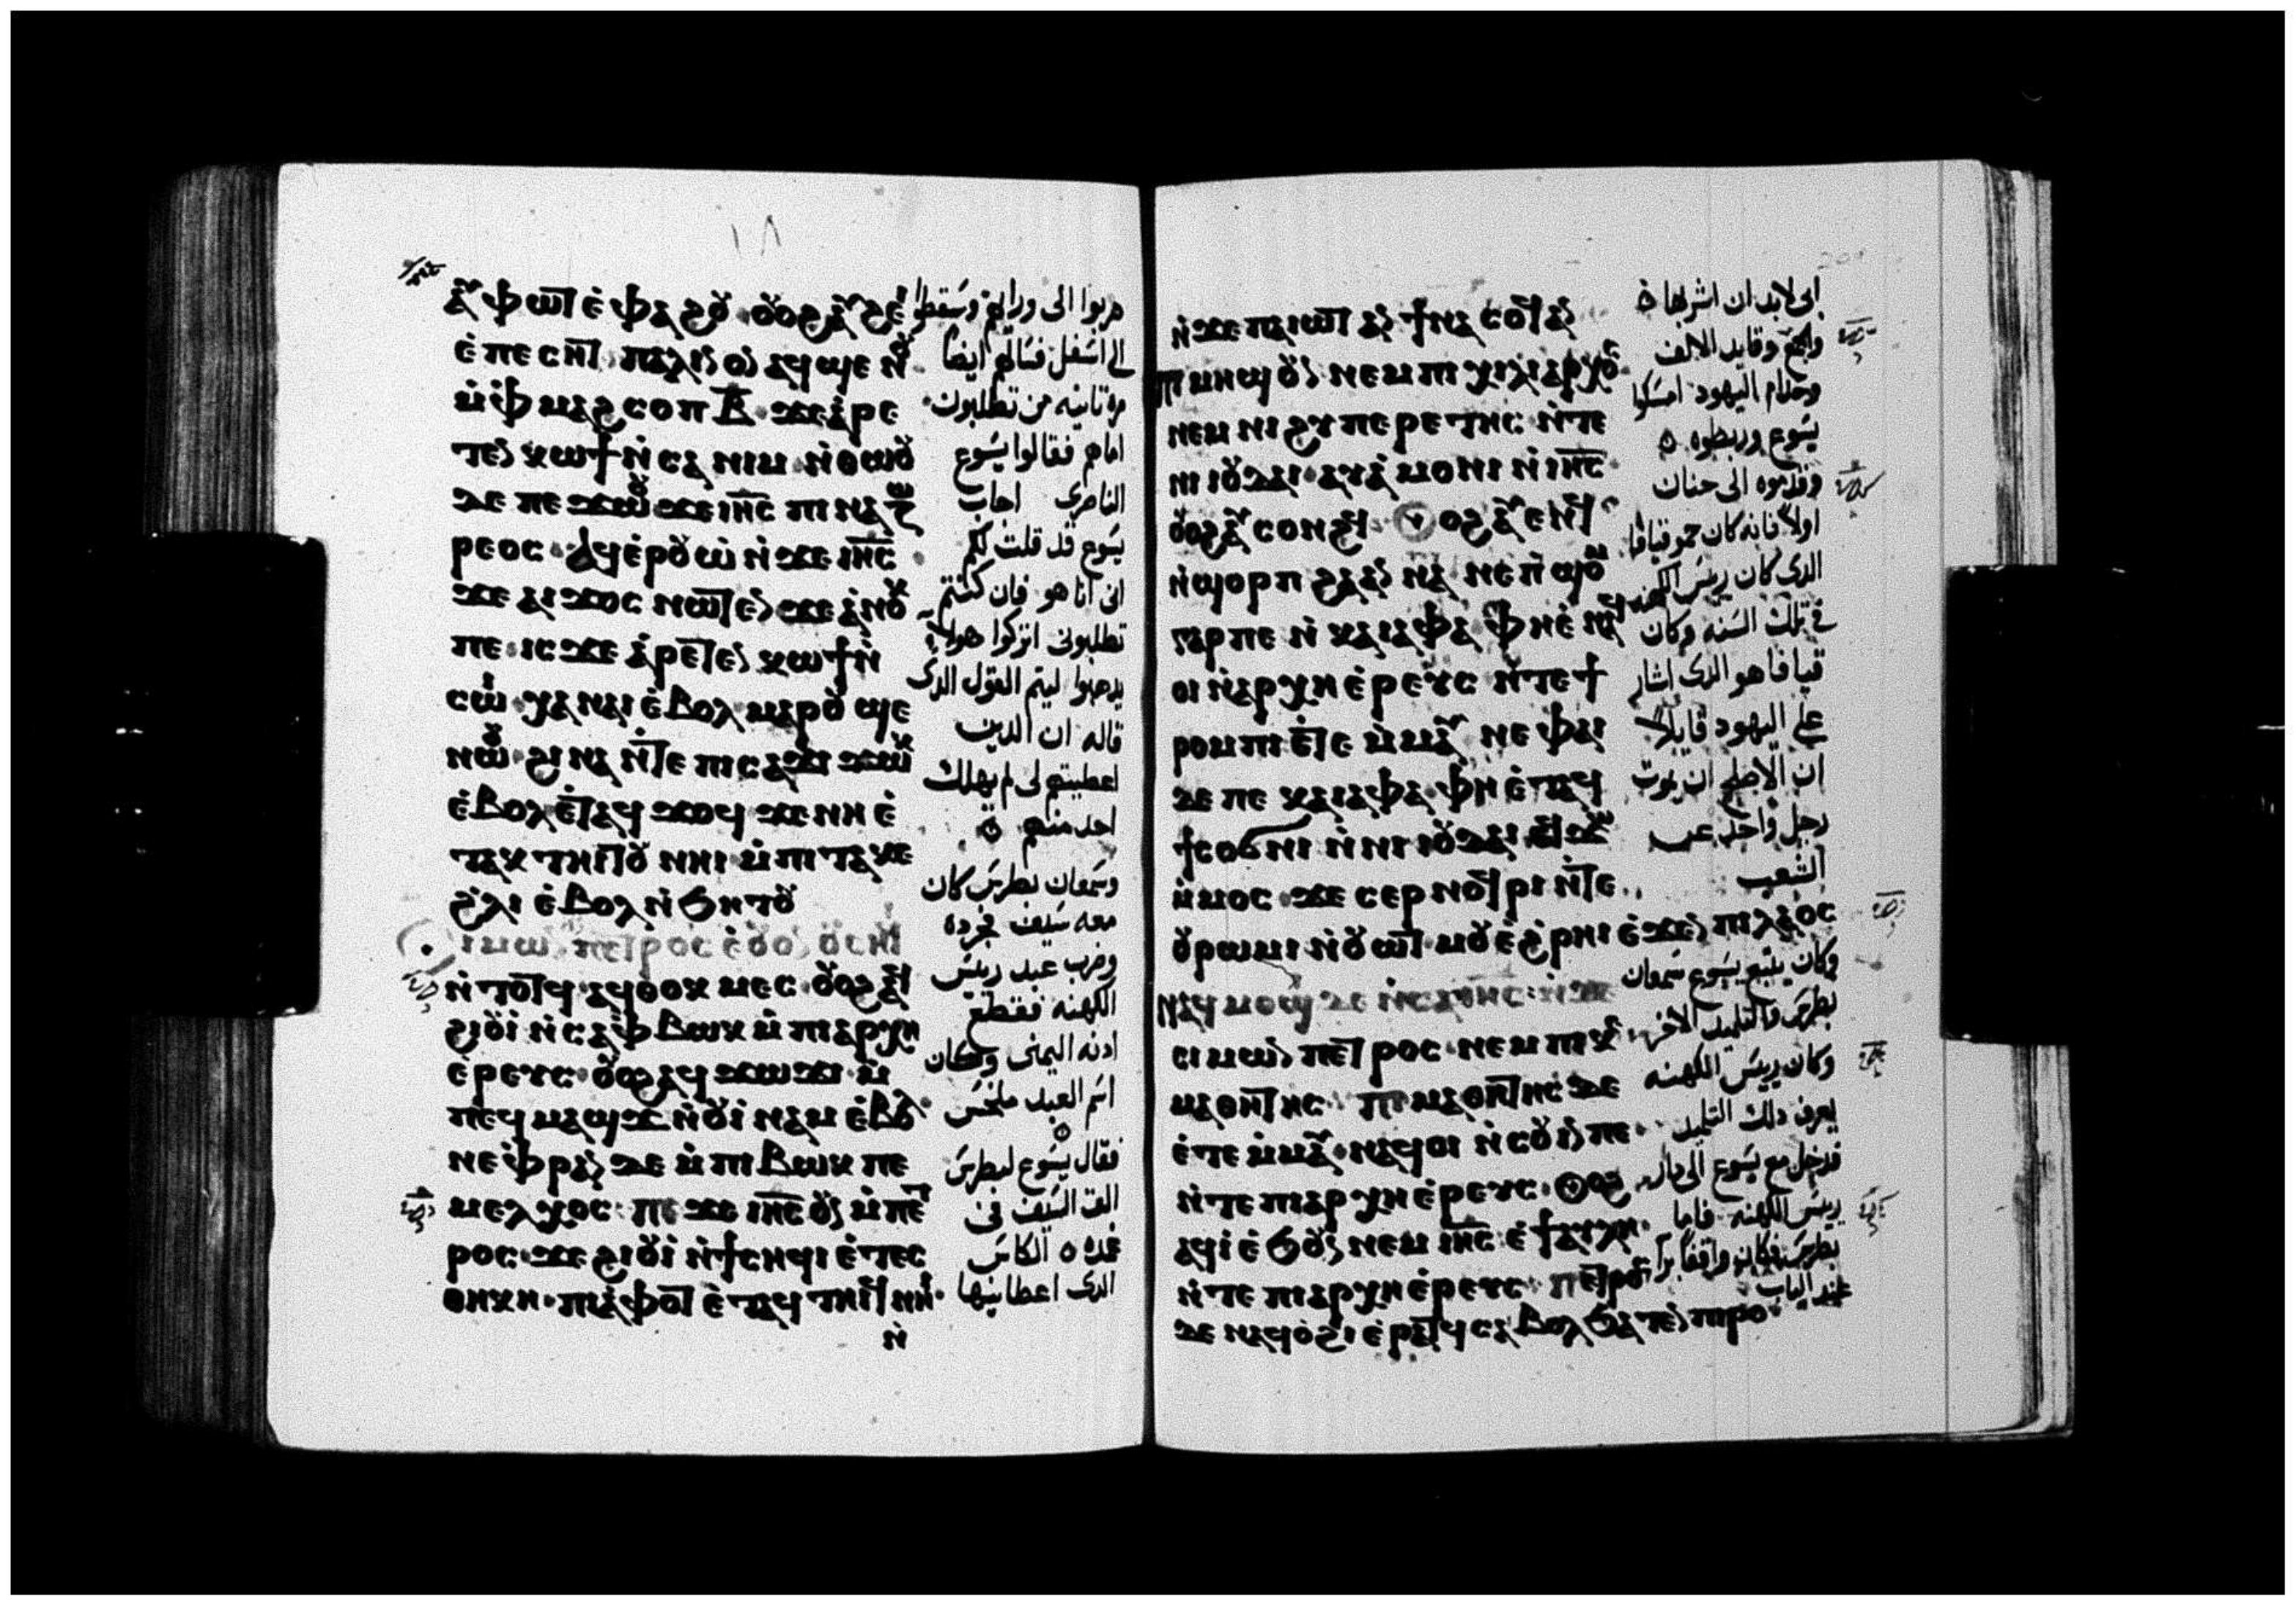 ١٨
ⲉⲡⲉⲥⲏⲧ ⲡⲁⲗⲓⲛ ⲟⲛ ⲁϥϣⲉⲛ
ⲙ̇ⲫⲙⲁϩⲥⲟⲡ ⲃ̅ ϫⲉ ⲁⲣⲉ
ⲧⲉⲛ ⲕⲱϯ ⲛ̇ⲥⲁ ⲛⲓⲙ ⲛ̇ⲑⲱⲟⲩ
ⲇⲉ ⲡⲉϫⲱⲟⲩ ϫⲉ ⲓⲏ̅ⲥ̅ ⲡⲓⲛⲁⲍⲱ
ⲣⲉⲟⲥ ⲁϥⲉⲣⲟⲩⲱ̇ ⲛ̇ϫⲉ ⲓⲏ̅ⲥ̅
ϫⲉ ⲁⲓϫⲟⲥ ⲛⲱⲧⲉⲛ ϫⲉ ⲁⲛⲟⲕ
ⲡⲉ ⲓⲥϫⲉ ⲁⲣⲉⲧⲉⲛ ⲕⲱϯ ⲛ̇
ⲥⲱⲓ ⲭⲁ ⲛⲁⲓ ⲉ̇ⲃⲟⲗ ⲙⲁⲣⲟⲩ ϣⲉ
ⲛⲱⲟⲩ ϩⲓⲛⲁ ⲛ̇ⲧⲉ ⲡⲓⲥⲁϫⲓ ϫⲱⲕ
ⲉ̇ⲃⲟⲗ ⲉ̇ⲧⲁϥ ϫⲟϥ ϫⲉ ⲛⲏ ⲉ̇
ⲧⲁⲕ ⲧⲏⲓⲧⲟⲩ ⲛⲏⲓ ⲙ̇ⲡⲓ ⲧⲁⲕⲉ
ϩⲗⲓ ⲉ̇ⲃⲟⲗ ⲛ̇ϧⲏⲧⲟⲩ
ⲥⲓⲙⲱⲛ ⲡⲉⲧⲣⲟⲥ ⲉ̇ⲟⲩⲟⲛ ⲟⲩⲥⲏϥⲓ
ⲛ̇ⲧⲟⲧϥ ⲁϥⲑⲟⲕⲙⲉⲥ ⲟⲩⲟϩ ⲁϥ
ϩⲓⲟⲩⲓ̇ ⲛ̇ⲥⲁ ⲫⲃⲱⲕ ⲙ̇ⲡⲓⲁⲣⲭⲏ
ⲉ̇ⲣⲉⲩⲥ ⲟⲩⲟϩ ⲁϥ ϫⲱϫⲓ ⲙ̇
ⲡⲉϥⲙⲁϣϫ ⲛ̇ⲟⲩⲓ̇ⲛⲁⲙ ⲉ̇ⲃⲟⲗ
ⲛⲉ ⲫⲣⲁⲛ ⲇⲉ ⲙ̇ⲡⲓⲃⲱⲕ ⲡⲉ
ⲙⲉⲗⲭⲟⲥ ⲡⲉϫⲉ ⲓⲏ̅ⲥ̅ ⲟⲩⲛ ⲙ̇ⲡⲉⲧ
ⲣⲟⲥ ϫⲉ ϩⲓⲟⲩⲓ̇ ⲛ̇ϯⲥⲏϥⲓ ⲉ̇ⲧⲉⲥ
ⲑⲏⲕⲏ ⲡⲓⲁ̇ⲫⲟⲧ ⲉ̇ⲧⲁϥ ⲧⲏⲓϥ ⲛⲏⲓ
ⲛ̇
هربوا الى ورايهم وسقطوا
الى اسفل فسالهم ايضا
مره تانيه من تطلبون
اماهم فقالوا يسوع
الناصرى اجاب
يسوع قد قلت لكم
انى انا هو فان كنتم
تطلبونى اتركوا هولا
يدهبوا ليتم القول الدى
قاله ان الدين
اعطيتهم لى لم يهلك
احد منهم
وسمعان بطرس كان
معه سيف فجرده
وضرب عبد رييس
الكهنه فقطع
ادنه اليمنى وكان
اسم العبد ملخس
فقال يسوع لبطرس
الق السيف فى
غمده الكاس
الدى اعطانيها
ⲛ̇ϫⲉ ⲡⲁⲓⲱⲧ ⲁⲛ ϯⲛⲁ ⲥⲟϥ ⲁⲛ
ⲡⲓⲙⲏϣ ⲟⲩⲛ ⲛⲉⲙ ⲡⲓ ⲭⲓⲗⲓⲁⲣⲭⲟⲥ
ⲛⲉⲙ ⲛⲓϩⲩⲡⲉⲣⲉⲧⲏⲥ ⲛ̇ⲧⲉ
ⲛⲓ ⲓⲟⲩⲇⲁⲓ ⲁⲩⲁ̇ⲙⲟⲛⲓ ⲛ̇ⲓⲏ̅ⲥ̅
ⲟⲩⲟϩ ⲁⲩⲥⲟⲛϩϥ ⲟⲩⲟϩ ⲁⲩⲉⲛϥ
ⲛ̇ϣⲟⲣⲡ ϩⲁ ⲁⲛⲛⲁ ⲛⲉ ⲡ̇ϣⲟⲙ
ⲅⲁⲣ ⲡⲉ ⲛ̇ⲕⲁⲓⲁⲫⲁ ⲫⲏ ⲉ̇ⲛⲁϥ
ⲟⲓ ⲛ̇ⲁⲣⲭⲏⲉ̇ⲣⲉⲩⲥ ⲛ̇ⲧⲉ ϯ
ⲣⲟⲙⲡⲓ ⲉ̇ⲧⲉ ⲙ̇ⲙⲁⲩ ⲛⲉ ⲫⲁⲓ
ⲇⲉ ⲡⲉ ⲕⲁⲓⲁⲫⲁ ⲫⲏ ⲉ̇ⲧⲁϥ
ϯⲥⲟϭⲛⲓ ⲛ̇ⲛⲓ ⲓⲟⲩⲇⲁⲓ ⲉϥϫⲱ
ⲙ̇ⲙⲟⲥ ϫⲉ ⲥⲉⲣⲛⲟϥⲣⲓ ⲛ̇ⲧⲉ
ⲟⲩⲣⲱⲙⲓ ⲛ̇ⲟⲩⲱⲧ ⲙⲟⲩ ⲉ̇ϩⲣⲏⲓ ⲉ̇ϫⲉⲛ ⲡⲓⲗⲁⲟⲥ
ⲛⲁϥⲙⲟϣⲓ ⲇⲉ ⲛ̇ⲥⲁ ⲓⲏ̅ⲥ̅ ⲛ̇ϫⲉ
ⲥⲓⲙⲱⲛ ⲡⲉⲧⲣⲟⲥ ⲛⲉⲙ ⲡⲓⲕⲉ
ⲙⲁⲑⲏⲧⲏⲥ ⲡⲓⲙⲁⲑⲏⲧⲏⲥ ⲇⲉ
ⲉ̇ⲧⲉ ⲙ̇ⲙⲁⲩ ⲛⲁϥⲟⲓ ⲛ̇ⲥⲟⲩⲓⲛ ⲡⲉ
ⲛ̇ⲧⲉ ⲡⲓⲁⲣⲭⲏⲉ̇ⲣⲉⲩⲥ ⲟⲩⲟϩ
ⲁϥⲓ̇ ⲉ̇ϧⲟⲩⲛ ⲛⲉⲙ ⲓⲏ̅ⲥ̅ ⲉ̇ϯⲁⲩⲗⲏ
ⲛ̇ⲧⲉ ⲡⲓⲁⲣⲭⲏⲉ̇ⲣⲉⲩⲥ ⲡⲉⲧⲣⲟⲥ
ⲇⲉ ⲛⲁϥⲟ̇ϩⲓ ⲉ̇ⲣⲁⲧϥ ⲥⲁⲃⲟⲗ ϧⲁⲧⲉⲛ ⲡⲓⲣⲟ
ابى لابد ان اشربها
والجمع وقايد الالف
وخدام اليهود امسكوا
يسوع وربطوه
وقدموه الى حنان
اولا فانه كان حمو قيافا
الدى كان رييس الكهنه
فى تلك السنه وكان
قيافا هو الدى اشار
على اليهود قايلا
ان الاصلح ان يموت
رجل واحد عن
الشعب
وكان يتبع يسوع سمعان
بطرس والتلميد الاخر
وكان رييس الكهنه
يعرف دلك التلميد
فدخل مع يسوع الى دار
رييس الكهنه فاما
بطرس فكان واقفا برا
عند الباب